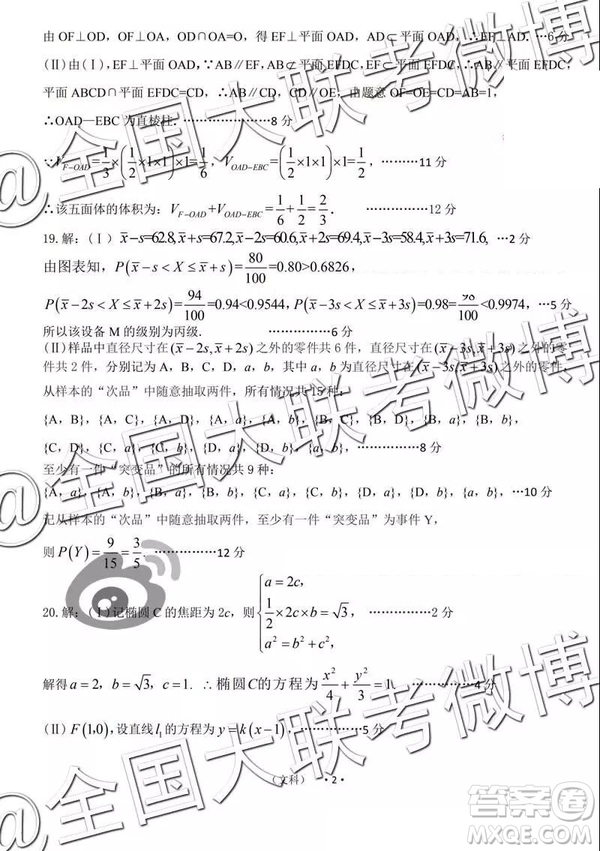 由 OF⊥OD，OF⊥OA，OD∩OA=O，得 EF⊥平面 OAD，AD⊂平面 OAD，∴EF⊥AD. …6 分
(Ⅱ)由(Ⅰ)，EF⊥平面 OAD，∵AB∥EF，AB⊄平面 EFDC，EF⊂平面 EFDC，∴AB∥平面 EFDC，∵AB⊂
平面 ABCD，平面 ABCD∩平面 EFDC=CD，∴AB∥CD，∴AB∥CD∥OE，由题意 OF=OE=CD=AB=1，
∴OAD—EBC 为直棱柱. ……………8 分
∵V_{F-OAD}=1/3×(1/2×1×1)×1=1/6，V_{OAD-EBC}=(1/2×1×1)×1=1/2，………11 分
∴该五面体的体积为：V_{F-OAD}+V_{OAD-EBC}=1/6+1/2=2/3. ……………12 分
19.解：(Ⅰ) x̄-s=62.8,x̄+s=67.2,x̄-2s=60.6,x̄+2s=69.4,x̄-3s=58.4,x̄+3s=71.6, …2 分
由图表知，P(x̄-s<X≤x̄+s)=80/100=0.80>0.6826,
P(x̄-2s<X≤x̄+2s)=94/100=0.94<0.9544, P(x̄-3s<X≤x̄+3s)=0.98=98/100<0.9974, …5 分
所以该设备 M 的级别为丙级. ……………6 分
(Ⅱ)样品中直径尺寸在(x̄-2s,x̄+2s)之外的零件共 6 件，直径尺寸在(x̄-3s,x̄+3s)之外的零
件共 2 件，分别记为 A，B，C，D，a，b，其中 a，b 为直径尺寸在(x̄-3s,x̄+3s)之外的零件，
从样本的“次品”中随意抽取两件，所有情况共 15 种：
{A，B}，{A，C}，{A，D}，{A，a}，{A，b}，{B，C}，{B，D}，{B，a}，{B，b}，
{C，D}，{C，a}，{C，b}，{D，a}，{D，b}，{a，b}，……………8 分
至少有一件“突变品”的所有情况共 9 种：
{A，a}，{A，b}，{B，a}，{B，b}，{C，a}，{C，b}，{D，a}，{D，b}，{a，b}，…10 分
记从样本的“次品”中随意抽取两件，至少有一件“突变品”为事件 Y，
则 P(Y)=9/15=3/5. ……………12 分
20.解：(Ⅰ)记椭圆 C 的焦距为 2c，则 {a=2c, 1/2×2c×b=√3, a²=b²+c², ……………2 分
解得 a=2，b=√3，c=1. ∴椭圆C的方程为 x²/4+y²/3=1. ……………4 分
(Ⅱ) F(1,0)，设直线 l₁ 的方程为 y=k(x-1)，……………5 分
(文科) ·2·
@全国大联考微博
@全国大联考微博
@全国大联考微博
答案卷
MXQE.COM